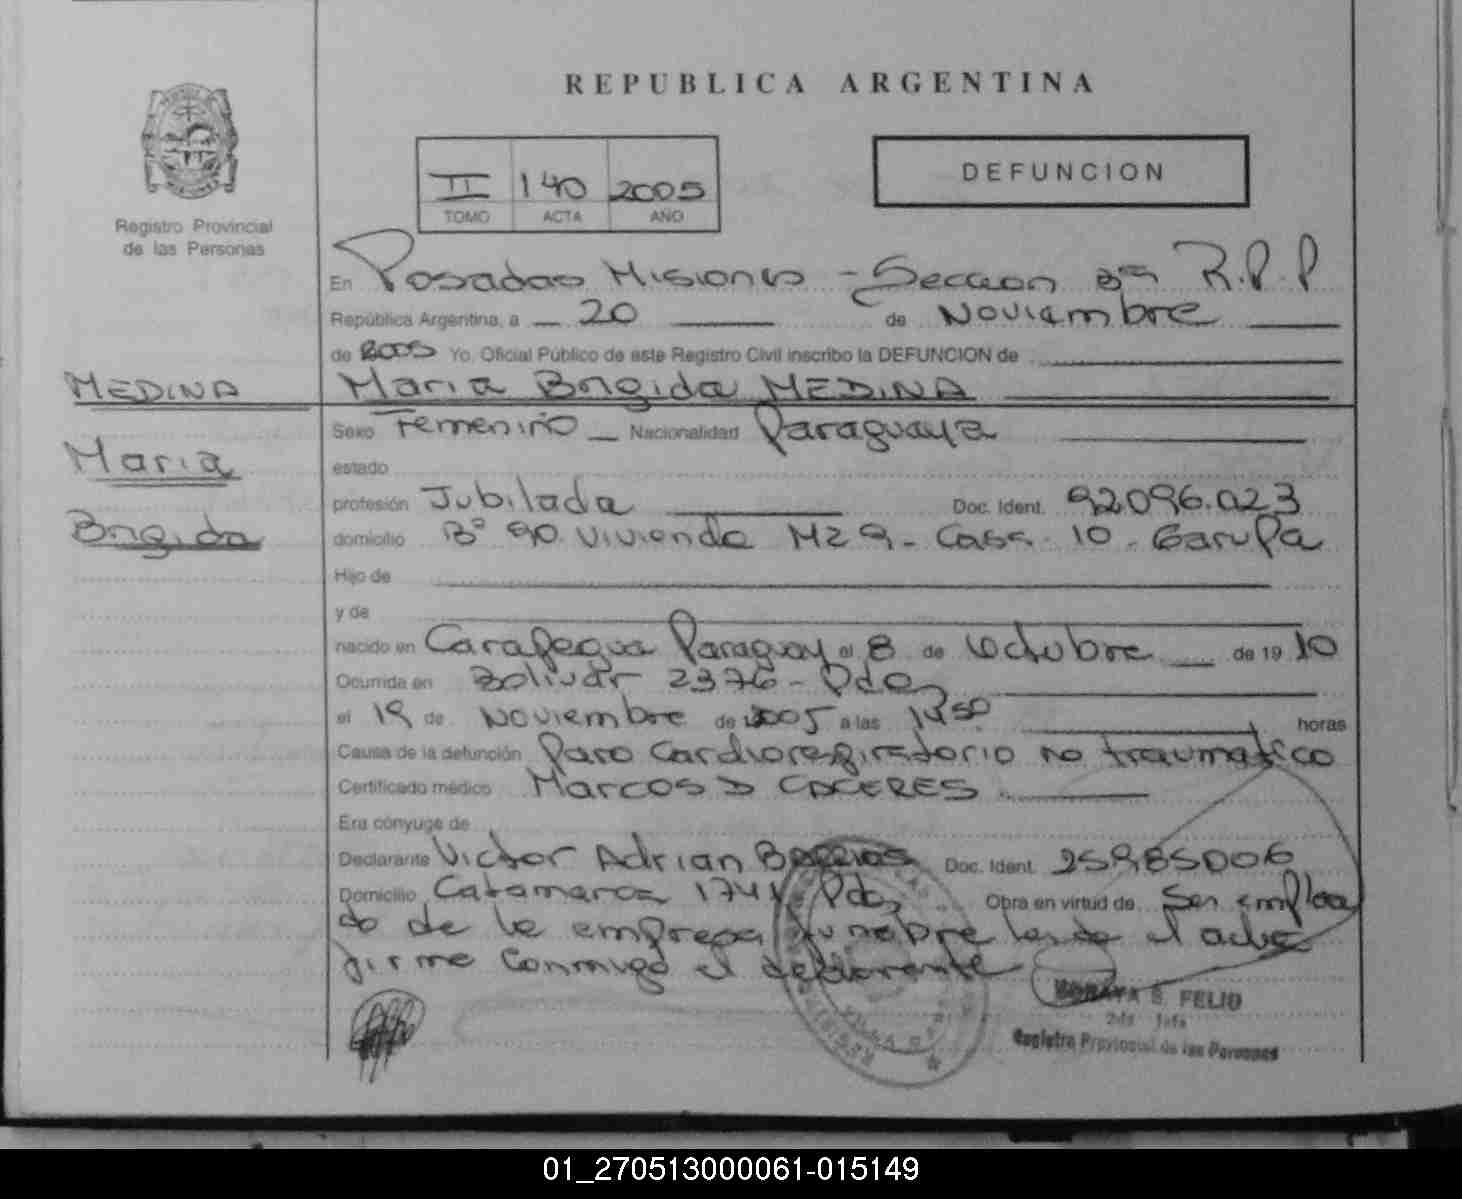 REPUBLICA ARGENTINA
Registro Provincial
de las Personas
II 140 2005
TOMO ACTA AÑO
DEFUNCION
En Posadas Misiones - Seccion 3ra R.P.P
República Argentina, a 20 de Noviembre
de 2005 Yo, Oficial Público de este Registro Civil inscribo la DEFUNCION de
MEDINA
Maria Brigida MEDINA
Maria
Brigida
Sexo Femenino Nacionalidad Paraguaya
estado
profesión Jubilada Doc. Ident. 92.096.023
domicilio B° 90 Vivienda Mz 9 - Casa 10 - Garupa
Hijo de
y de
nacido en Carapegua Paraguay el 8 de Octubre de 19 10
Ocurrida en Bolivar 2376 - Pdas
el 19 de Noviembre de 2005 a las 14:50 horas
Causa de la defunción Paro Cardiorespiratorio no traumatico
Certificado médico Marcos D CACERES
Era cónyuge de
Declarante Victor Adrian Doc. Ident. 25985006
Domicilio Catamarca 1741 Pdas Obra en virtud de Ser emplea
do de la empresa funebre leida el acta
firma conmigo el declarante
SORAYA S. FELIU
Jefa
Registro Provincial de las Personas
01_270513000061-015149